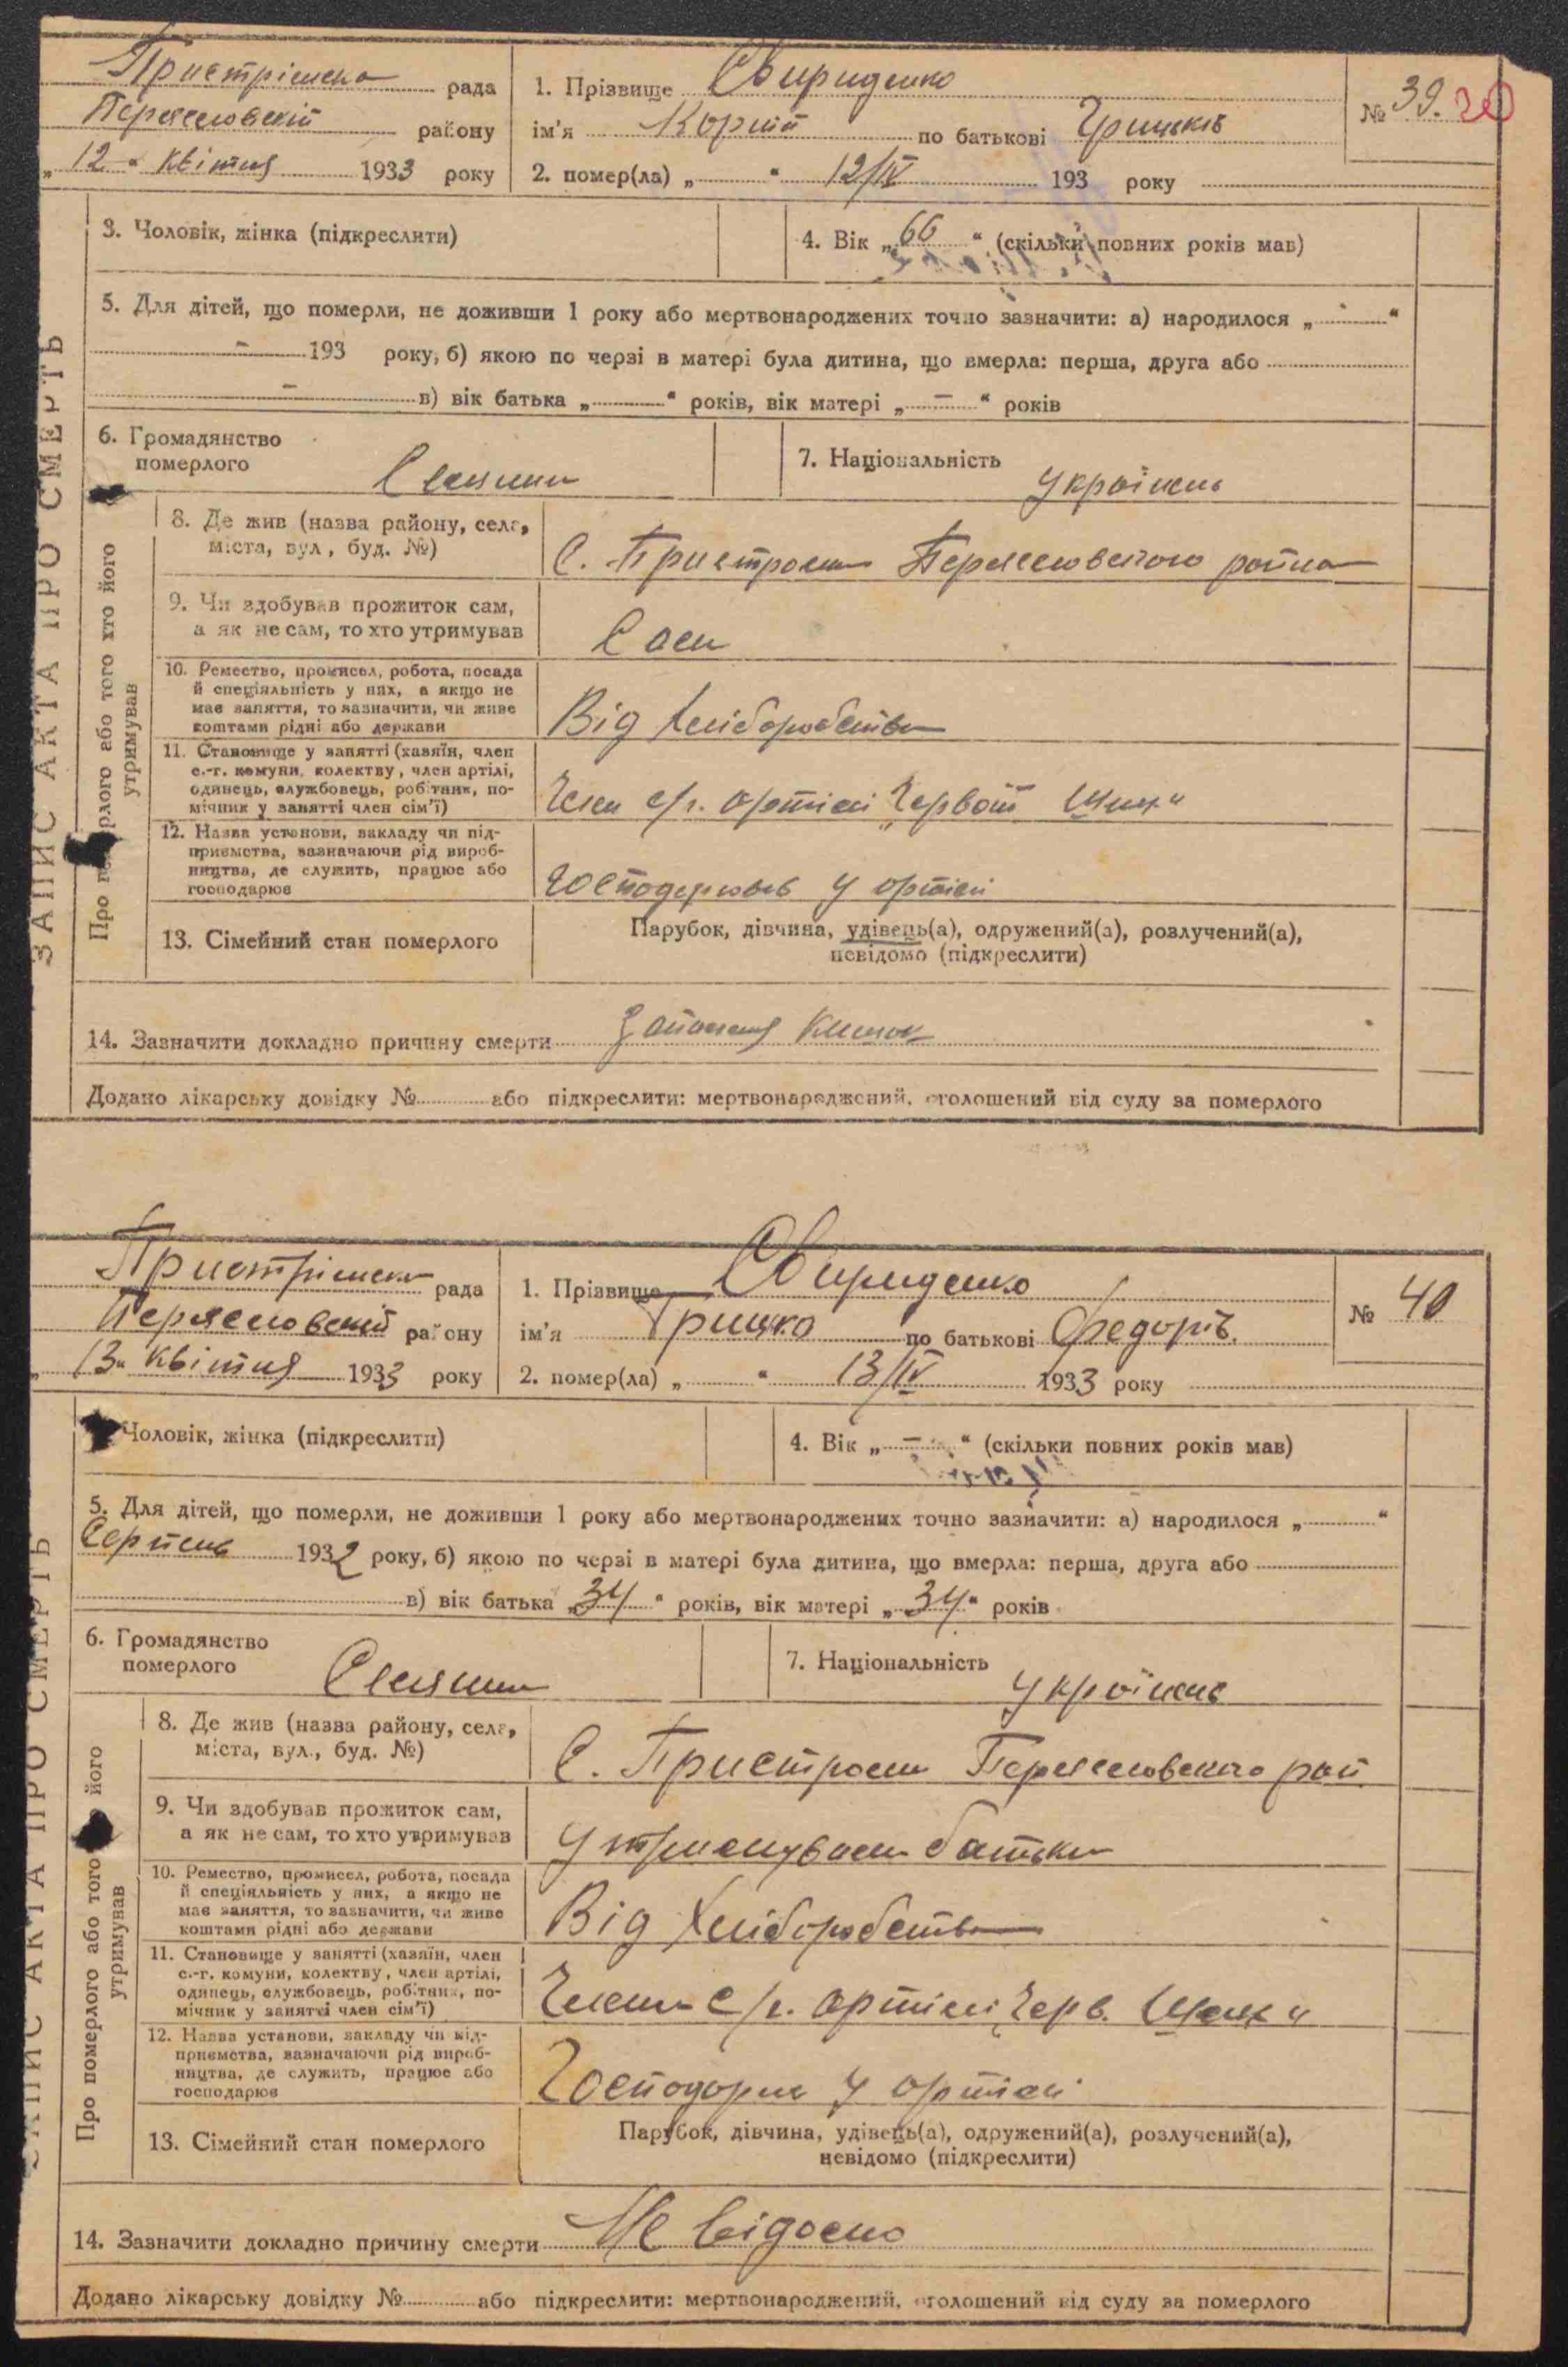 Пристрімска рада
Переяславський району
„12“ квітня 1933 року
1. Прізвище Свириденко
ім'я Корній по батькові Грицьків
2. помер(ла) „ “ 12/IV 193 року
№ 39. 20
ЗАПИС АКТА ПРО СМЕРТЬ
3. Чоловік, жінка (підкреслити)
4. Вік „66“ (скільки повних років мав)
5. Для дітей, що померли, не доживши 1 року або мертвонароджених точно зазначити: а) народилося „ - “
- 193 року, б) якою по черзі в матері була дитина, що вмерла: перша, друга або
- в) вік батька „ “ років, вік матері „ - “ років
6. Громадянство
померлого Селянин
7. Національність українець
Про померлого або того хто його
утримував
8. Де жив (назва району, села,
міста, вул., буд. №)
С. Пристроми Переяславского района
9. Чи здобував прожиток сам,
а як не сам, то хто утримував
Сам
10. Ремество, промисел, робота, посада
й спеціяльність у них, а якщо не
має заняття, то зазначити, чи живе
коштами рідні або держави
Від хліборобства
11. Становище у занятті (хазяїн, член
с.-г. комуни, колективу, член артілі,
одинець, службовець, робітник, по-
мічник у занятті член сім'ї)
Член с/г. артілі „Червоний Шлях“
12. Назва установи, закладу чи під-
приємства, зазначаючи рід вироб-
ництва, де служить, працює або
господарює
господарював у артілі
13. Сімейний стан померлого
Парубок, дівчина, удівець(а), одружений(а), розлучений(а),
невідомо (підкреслити)
14. Зазначити докладно причину смерти Запалення кишок
Додано лікарську довідку № або підкреслити: мертвонароджений, оголошений від суду за померлого
Пристрімска рада
Переяславський району
„13“ квітня 1933 року
1. Прізвище Свириденко
ім'я Грицько по батькові Федорів.
2. помер(ла) „ “ 13/IV 1933 року
№ 40
ЗАПИС АКТА ПРО СМЕРТЬ
Чоловік, жінка (підкреслити)
4. Вік „ - “ (скільки повних років мав)
5. Для дітей, що померли, не доживши 1 року або мертвонароджених точно зазначити: а) народилося „ “
Серпень 1932 року, б) якою по черзі в матері була дитина, що вмерла: перша, друга або
в) вік батька „34“ років, вік матері „34“ років
6. Громадянство
померлого Селянин
7. Національність українець
Про померлого або того його
утримував
8. Де жив (назва району, села,
міста, вул., буд. №)
С. Пристроми Переяславского рай
9. Чи здобував прожиток сам,
а як не сам, то хто утримував
Утримували батьки
10. Ремество, промисел, робота, посада
й спеціяльність у них, а якщо не
має заняття, то зазначити, чи живе
коштами рідні або держави
Від хліборобства
11. Становище у занятті (хазяїн, член
с.-г. комуни, колективу, член артілі,
одинець, службовець, робітник, по-
мічник у занятті член сім'ї)
Члени с/г. артілі „Черв. Шлях“
12. Назва установи, закладу чи під-
приємства, зазначаючи рід вироб-
ництва, де служить, працює або
господарює
Господарює у артілі
13. Сімейний стан померлого
Парубок, дівчина, удівець(а), одружений(а), розлучений(а),
невідомо (підкреслити)
14. Зазначити докладно причину смерти Не відомо
Додано лікарську довідку № або підкреслити: мертвонароджений, оголошений від суду за померлого